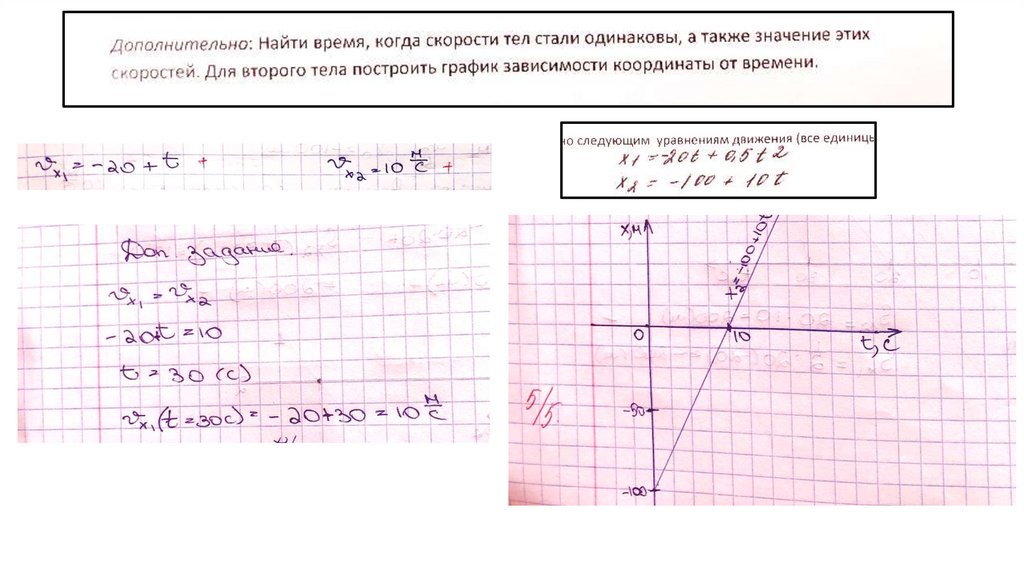 Дополнительно: Найти время, когда скорости тел стали одинаковы, а также значение этих
скоростей. Для второго тела построить график зависимости координаты от времени.
но следующим уравнениям движения (все единицы
x₁ = -20t + 0,5t2
x₂ = -100 + 10t
vx₁ = -20 + t +
vx₂ = 10 м/с +
Доп. задание.
vx₁ = vx₂
-20+t = 10
t = 30 (с)
vx₁(t=30с) = -20+30 = 10 м/с
x,м
x₂=-100+10t
0
10
t,с
-50
-100
5/5.